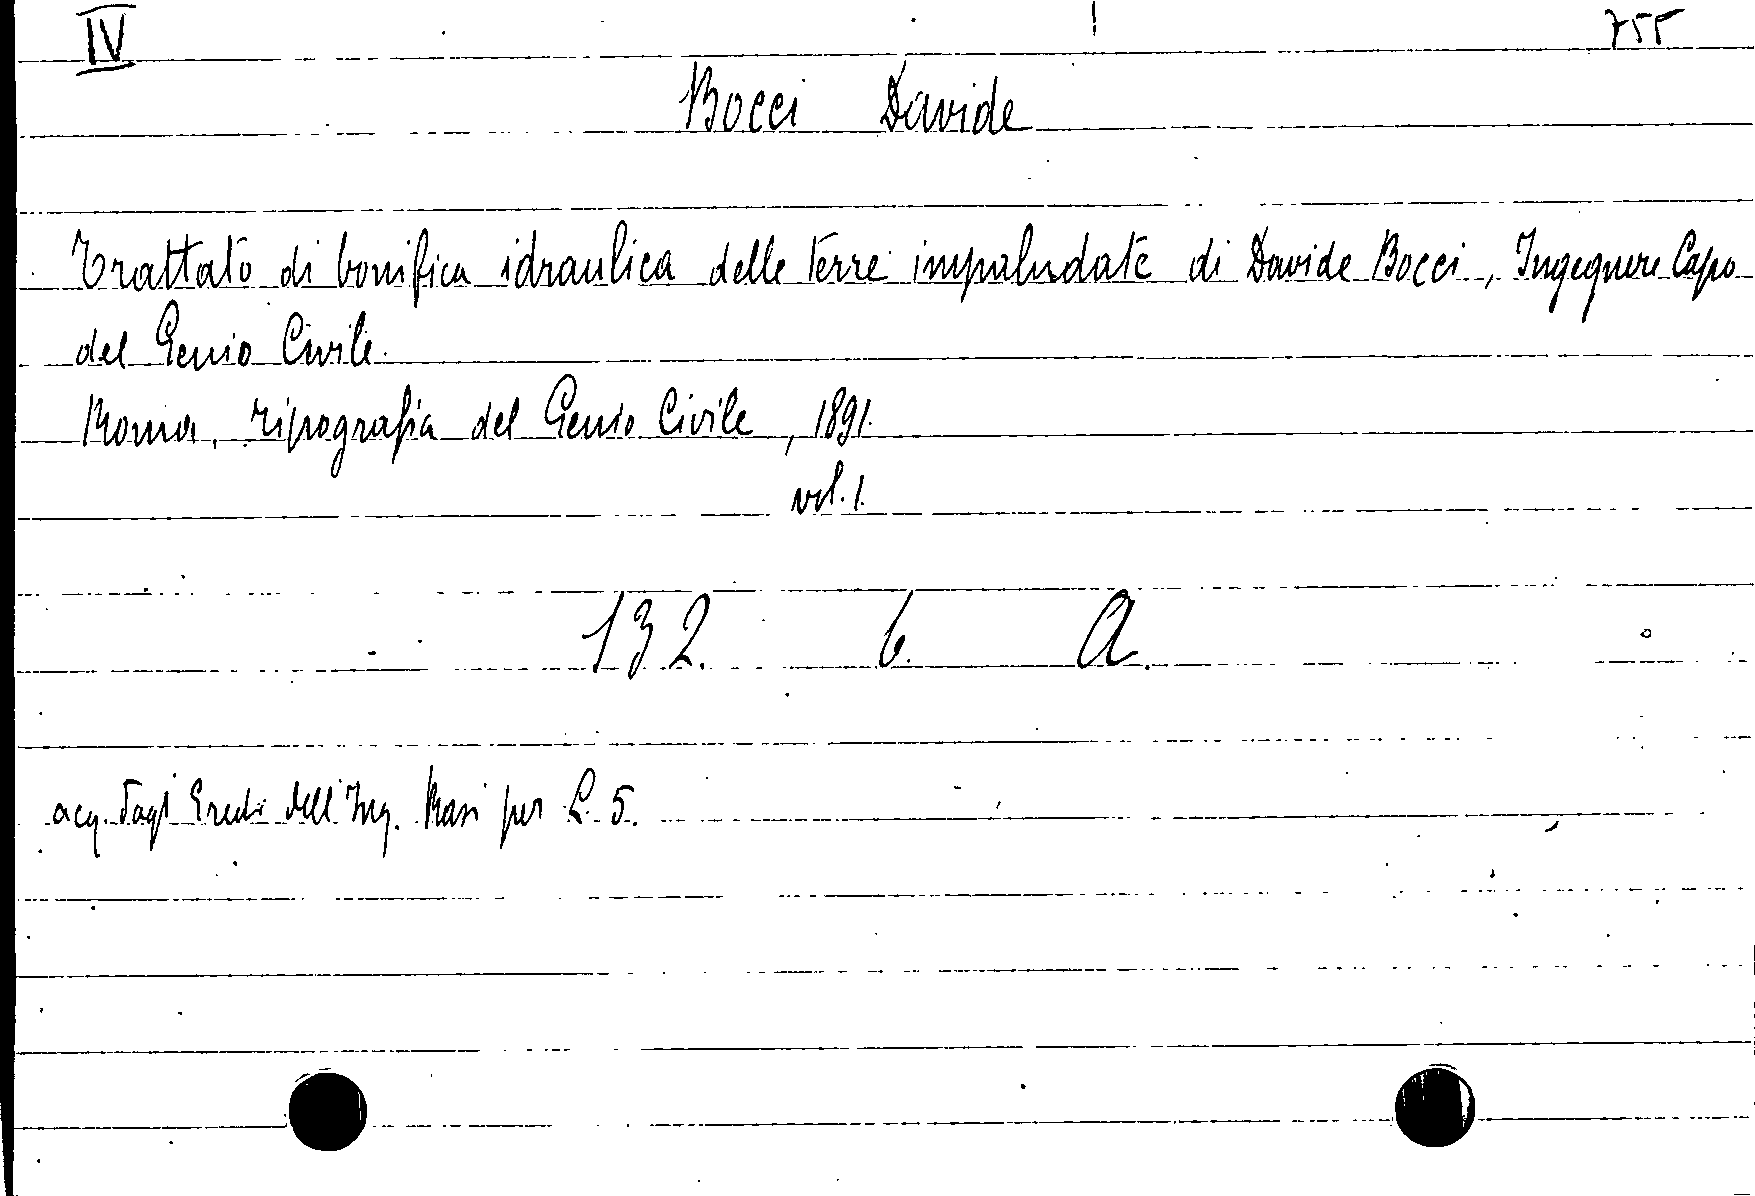 IV 755
Bocci Davide
Trattato di bonifica idraulica delle terre impaludate di Davide Bocci, Ingegnere Capo
del Genio Civile.
Roma, Tipografia del Genio Civile, 1891.
vol. 1.
132. 6. A.
acq. dagl' Eredi dell'Ing. per L. 5.